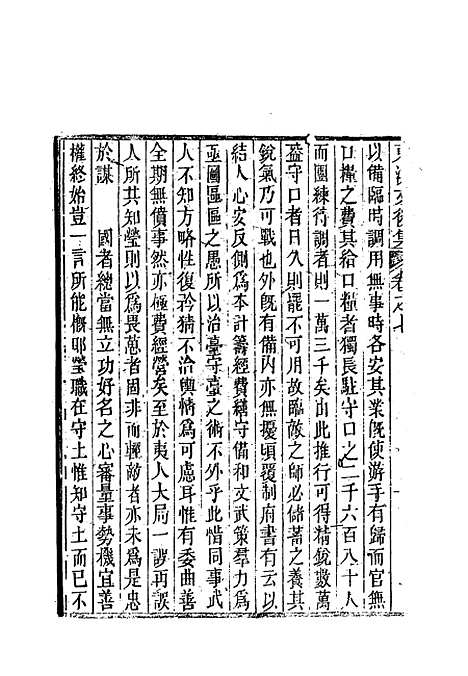 東溟文後集卷之七
以備臨時調用無事時各安其業旣使游手有歸而官無
口糧之費其給口糧者獨長駐守口之二千六百八十人
而團練待調者則一萬三千矣由此推行可得精銳數萬
蓋守口者日久則罷不可戰故臨敵之師必儲蓄之養其
銳氣乃可戰也外旣有備內亦無擾頃覆制府書有云以
結人心安反側爲本計籌經費繕守備和文武策羣力爲
亟圖區區之愚所以治臺守臺之術不外乎此惜同事武
人不知方略性復矜猜不洽輿情爲可慮耳惟有委曲善
全期無僨事然亦極費經營矣至於夷人大局一謬再誤
人所共知瑩則以爲畏葸者固非而輕敵者亦未爲是忠
於謀　國者總當無立功好名之心審量事勢機宜善
權終始豈一言所能慨耶瑩職在守土惟知守土而已不